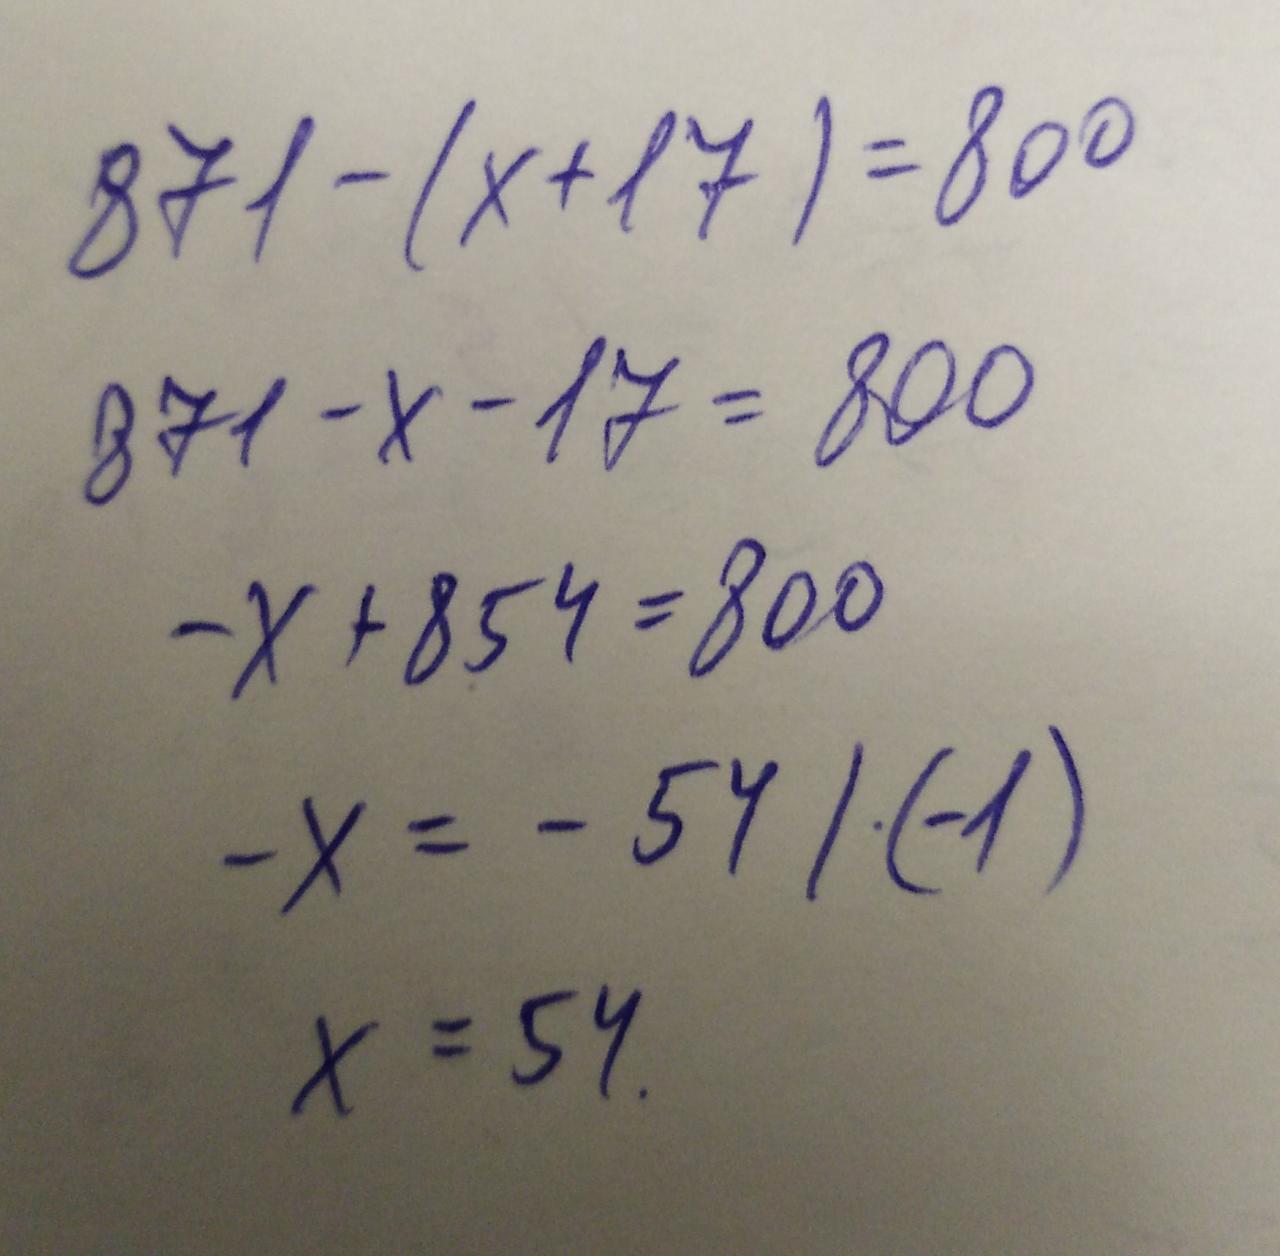 871 - (x + 17) = 800
871 - x - 17 = 800
-x + 854 = 800
-x = - 54 | · (-1)
x = 54.